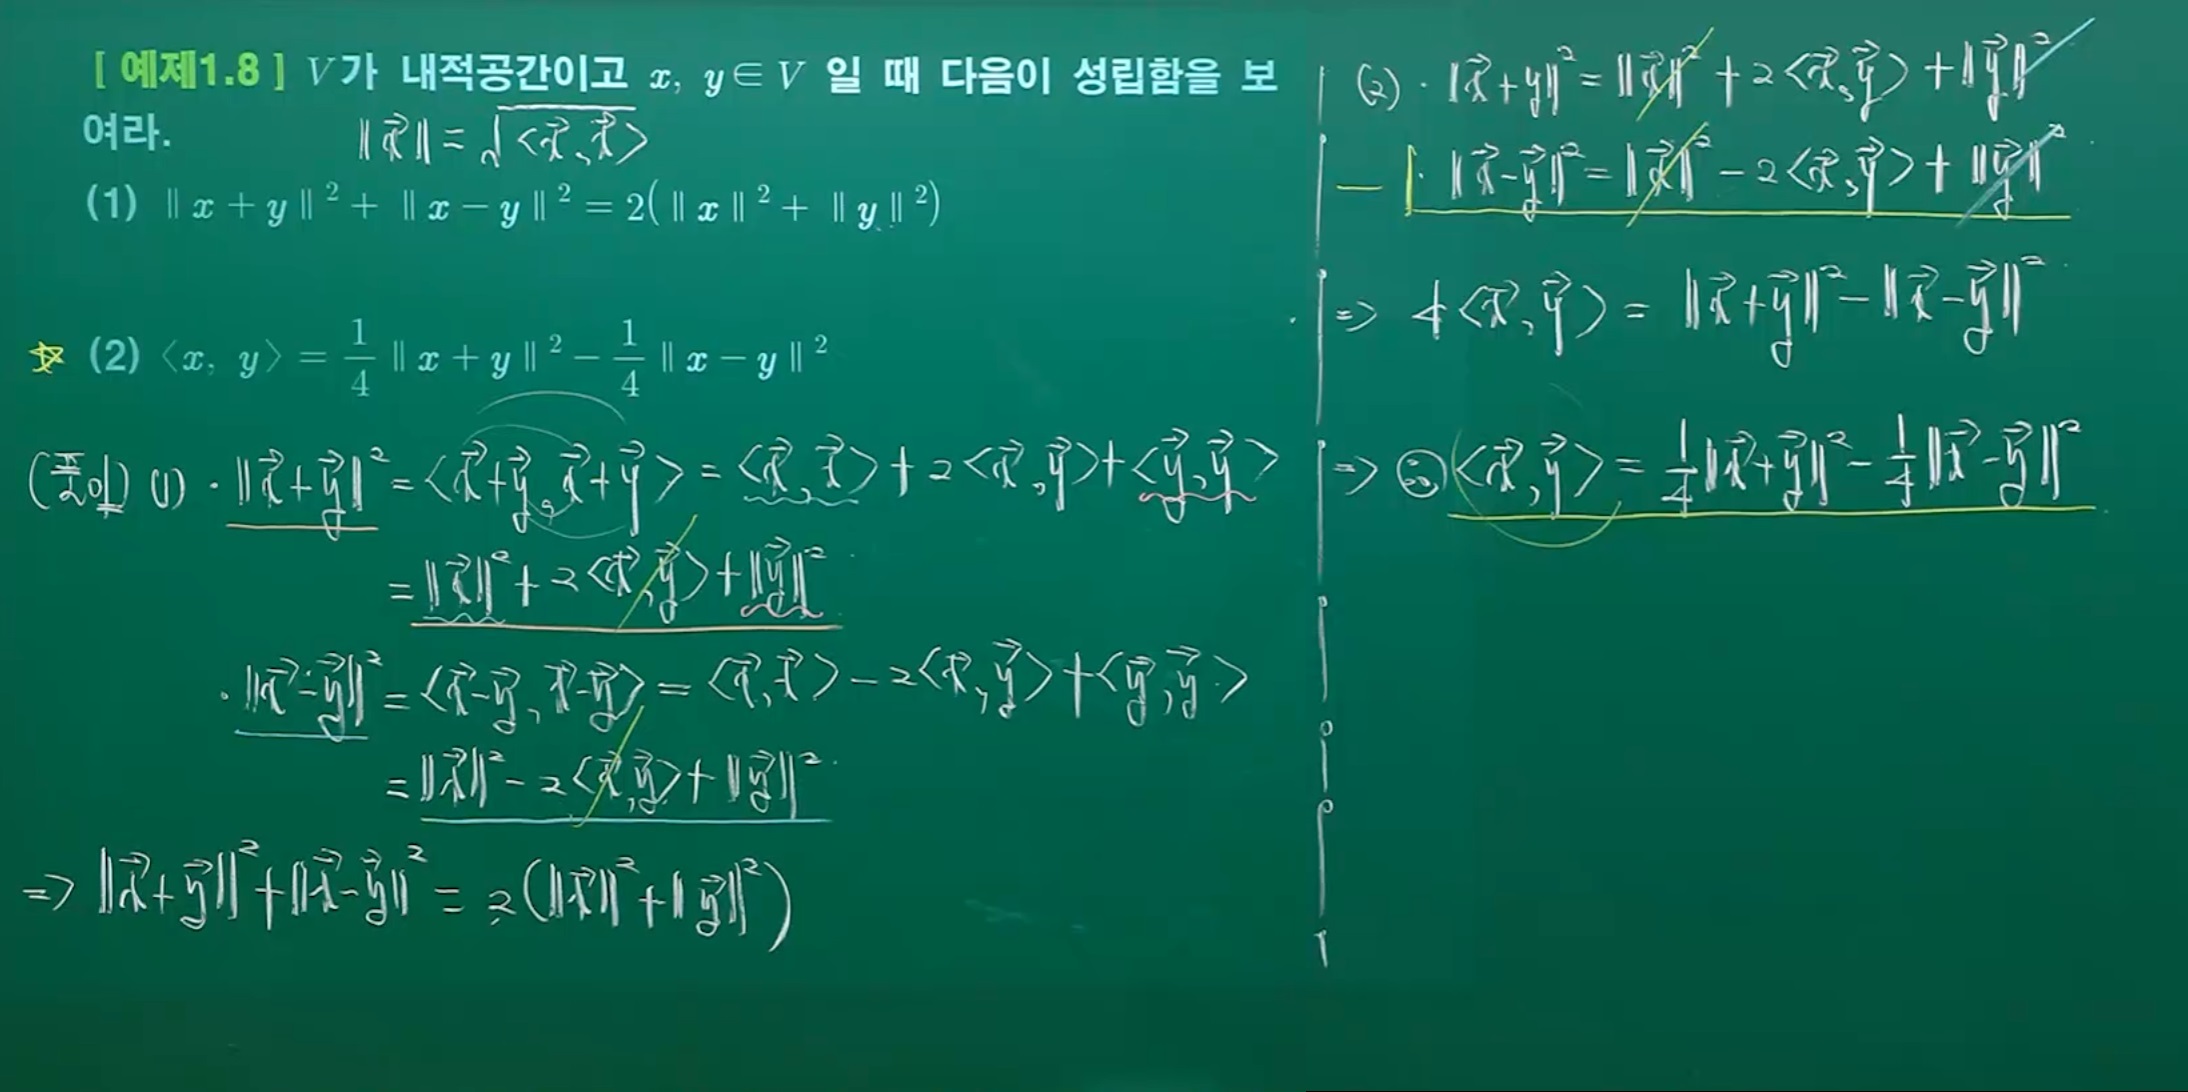 [ 예제1.8 ] V가 내적공간이고 x, y∈V 일 때 다음이 성립함을 보
여라.
‖x⃗‖ = √<x⃗, x⃗>
(1) ‖x+y‖² + ‖x−y‖² = 2(‖x‖² + ‖y‖²)
☆ (2) ⟨x, y⟩ = 1/4 ‖x+y‖² − 1/4 ‖x−y‖²
(풀이) (1) · ‖x⃗+y⃗‖² = <x⃗+y⃗, x⃗+y⃗> = <x⃗, x⃗> + 2<x⃗, y⃗> + <y⃗, y⃗>
= ‖x⃗‖² + 2<x⃗, y⃗> + ‖y⃗‖²
· ‖x⃗−y⃗‖² = <x⃗−y⃗, x⃗−y⃗> = <x⃗, x⃗> − 2<x⃗, y⃗> + <y⃗, y⃗>
= ‖x⃗‖² − 2<x⃗, y⃗> + ‖y⃗‖²
=> ‖x⃗+y⃗‖² + ‖x⃗−y⃗‖² = 2(‖x⃗‖² + ‖y⃗‖²)
(2) · ‖x⃗+y‖² = ‖x⃗‖² + 2<x⃗, y⃗> + ‖y⃗‖²
− · ‖x⃗−y⃗‖² = ‖x⃗‖² − 2<x⃗, y⃗> + ‖y⃗‖²
=> 4<x⃗, y⃗> = ‖x⃗+y⃗‖² − ‖x⃗−y⃗‖²
=> ∴ <x⃗, y⃗> = 1/4 ‖x⃗+y⃗‖² − 1/4 ‖x⃗−y⃗‖²